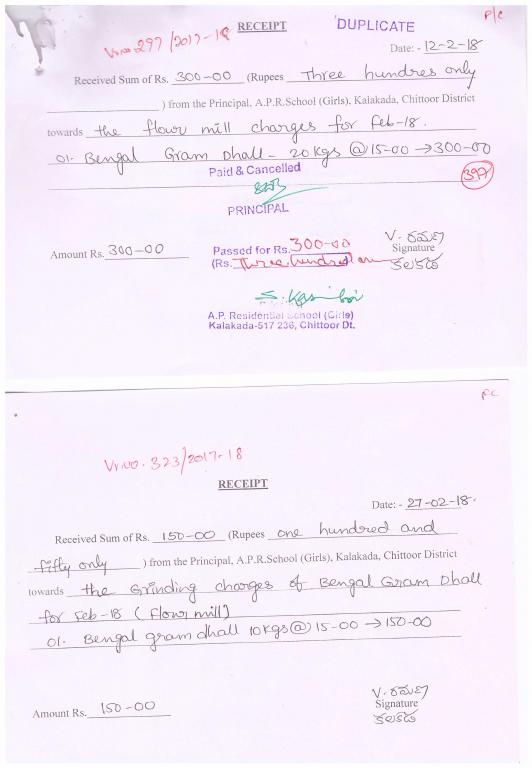 P/C
DUPLICATE
RECEIPT
Vr.no 297/2017-18
Date: - 12-2-18
Received Sum of Rs. 300-00 (Rupees Three hundres only
) from the Principal, A.P.R.School (Girls), Kalakada, Chittoor District
towards the flour mill charges for Feb-18.
01. Bengal Gram Dhall - 20 kgs @ 15-00 → 300-00
Paid & Cancelled
397
PRINCIPAL
Amount Rs. 300-00
Passed for Rs. 300-00
(Rs. Three hundred
V. రమణ
Signature
కలకడ
A.P. Residential School (Girls)
Kalakada-517 236, Chittoor Dt.
PC
Vr.NO. 323/2017-18
RECEIPT
Date: - 27-02-18.
Received Sum of Rs. 150-00 (Rupees one hundred and
fifty only ) from the Principal, A.P.R.School (Girls), Kalakada, Chittoor District
towards the Grinding charges of Bengal Gram Dhall
for Feb-18 (flour mill)
01. Bengal gram dhall 10 kgs @ 15-00 → 150-00
Amount Rs. 150-00
V. రమణ
Signature
కలకడ